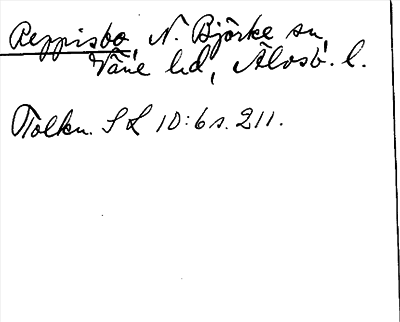 Reppisbo, N. Björke sn,
Väne hd, Älvsb. l.
Tolkn. SL 10:6 s. 211.